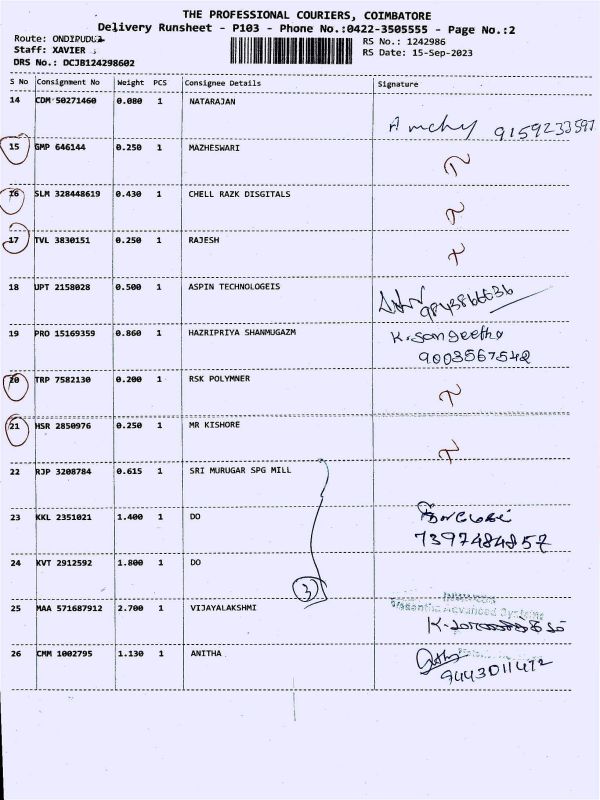 THE PROFESSIONAL COURIERS, COIMBATORE
Delivery Runsheet - P103 - Phone No.:0422-3505555 - Page No.:2
Route: ONDIPUDU2
RS No.: 1242986
Staff: XAVIER
RS Date: 15-Sep-2023
DRS No.: DCJB124298602
S No Consignment No Weight PCS Consignee Details Signature
14 CDM 50271460 0.080 1 NATARAJAN
9159233597
15 GMP 646144 0.250 1 MAZHESWARI
16 SLM 328448619 0.430 1 CHELL RAZK DISGITALS
17 TVL 3830151 0.250 1 RAJESH
18 UPT 2158028 0.500 1 ASPIN TECHNOLOGEIS
9843866636
19 PRO 15169359 0.860 1 HAZRIPRIYA SHANMUGAZM
K. Sangeetha
9003567542
20 TRP 7582130 0.200 1 RSK POLYMNER
21 HSR 2850976 0.250 1 MR KISHORE
22 RJP 3208784 0.615 1 SRI MURUGAR SPG MILL
23 KKL 2351021 1.400 1 DO
7397484857
24 KVT 2912592 1.800 1 DO
3
25 MAA 571687912 2.700 1 VIJAYALAKSHMI
Advanced Systems
26 CMM 1002795 1.130 1 ANITHA
9443011472